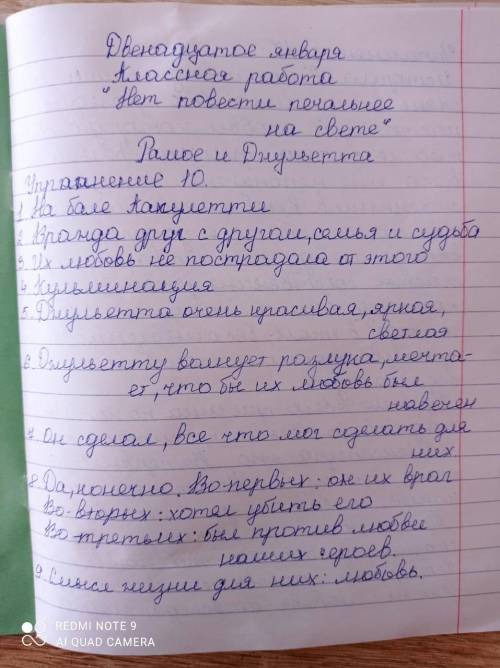 Двенадцатое января
Классная работа
"Нет повести печальнее
на свете"
Рамое и Джульетта
Упражнение 10.
1. На бале Капулетти
2. Вражда друг с другом, семья и судьба
3. Их любовь не пострадала от этого
4. Кульминация
5. Джульетта очень красивая, яркая,
светлая
6. Джульетту волнует разлука, мечта-
ет, что бы их любовь был
навечен
7. Он сделал, все что мог сделать для
них
8. Да, конечно. Во-первых: он их враг
Во-вторых: хотел убить его
Во-третьих: был против любви
наших героев.
9. Смысл жизни для них: любовь.
REDMI NOTE 9
AI QUAD CAMERA